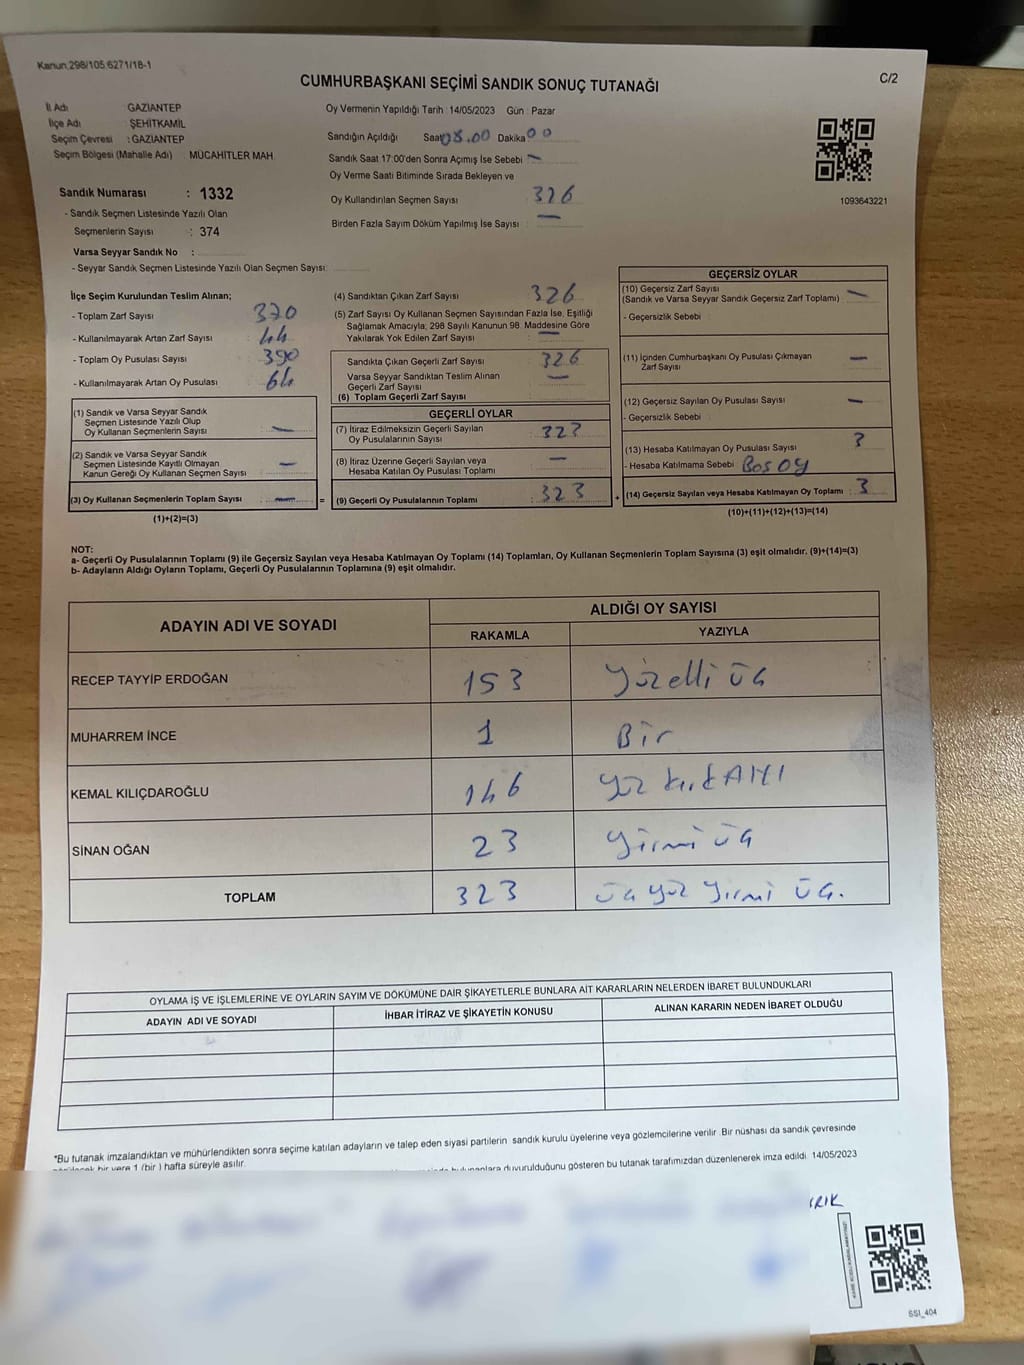 Kanun.298/105,6271/18-1
C/2
CUMHURBAŞKANI SEÇİMİ SANDIK SONUÇ TUTANAĞI
İl Adı GAZİANTEP
İlçe Adı ŞEHİTKAMİL
Seçim Çevresi : GAZİANTEP
Seçim Bölgesi (Mahalle Adı) : MÜCAHİTLER MAH.
Sandık Numarası : 1332
- Sandık Seçmen Listesinde Yazılı Olan
Seçmenlerin Sayısı : 374
Varsa Seyyar Sandık No :
- Seyyar Sandık Seçmen Listesinde Yazılı Olan Seçmen Sayısı:
Oy Vermenin Yapıldığı Tarih : 14/05/2023 Gün : Pazar
Sandığın Açıldığı Saat 08.00 Dakika 00
Sandık Saat 17:00'den Sonra Açımış İse Sebebi —
Oy Verme Saati Bitiminde Sırada Bekleyen ve
Oy Kullandırılan Seçmen Sayısı : 326
Birden Fazla Sayım Döküm Yapılmış İse Sayısı : —
1093643221
İlçe Seçim Kurulundan Teslim Alınan;
- Toplam Zarf Sayısı 370
- Kullanılmayarak Artan Zarf Sayısı : 44
- Toplam Oy Pusulası Sayısı : 390
- Kullanılmayarak Artan Oy Pusulası : 64
(1) Sandık ve Varsa Seyyar Sandık
Seçmen Listesinde Yazılı Olup
Oy Kullanan Seçmenlerin Sayısı : —
(2) Sandık ve Varsa Seyyar Sandık
Seçmen Listesinde Kayıtlı Olmayan
Kanun Gereği Oy Kullanan Seçmen Sayısı : —
(3) Oy Kullanan Seçmenlerin Toplam Sayısı : — =
(1)+(2)=(3)
(4) Sandıktan Çıkan Zarf Sayısı : 326
(5) Zarf Sayısı Oy Kullanan Seçmen Sayısından Fazla İse, Eşitliği
Sağlamak Amacıyla; 298 Sayılı Kanunun 98. Maddesine Göre
Yakılarak Yok Edilen Zarf Sayısı : —
Sandıkta Çıkan Geçerli Zarf Sayısı : 326
Varsa Seyyar Sandıktan Teslim Alınan
Geçerli Zarf Sayısı : —
(6) Toplam Geçerli Zarf Sayısı :
GEÇERLİ OYLAR
(7) İtiraz Edilmeksizin Geçerli Sayılan
Oy Pusulalarının Sayısı : 323
(8) İtiraz Üzerine Geçerli Sayılan veya
Hesaba Katılan Oy Pusulası Toplamı : —
(9) Geçerli Oy Pusulalarının Toplamı : 323 +
GEÇERSİZ OYLAR
(10) Geçersiz Zarf Sayısı : —
(Sandık ve Varsa Seyyar Sandık Geçersiz Zarf Toplamı)
- Geçersizlik Sebebi :
(11) İçinden Cumhurbaşkanı Oy Pusulası Çıkmayan
Zarf Sayısı : —
(12) Geçersiz Sayılan Oy Pusulası Sayısı : —
- Geçersizlik Sebebi :
(13) Hesaba Katılmayan Oy Pusulası Sayısı : 3
- Hesaba Katılmama Sebebi : Boş oy
(14) Geçersiz Sayılan veya Hesaba Katılmayan Oy Toplamı : 3
(10)+(11)+(12)+(13)=(14)
NOT:
a- Geçerli Oy Pusulalarının Toplamı (9) ile Geçersiz Sayılan veya Hesaba Katılmayan Oy Toplamı (14) Toplamları, Oy Kullanan Seçmenlerin Toplam Sayısına (3) eşit olmalıdır. (9)+(14)=(3)
b- Adayların Aldığı Oyların Toplamı, Geçerli Oy Pusulalarının Toplamına (9) eşit olmalıdır.
ADAYIN ADI VE SOYADI
ALDIĞI OY SAYISI
RAKAMLA YAZIYLA
RECEP TAYYİP ERDOĞAN 153 Yüzelli üç
MUHARREM İNCE 1 Bir
KEMAL KILIÇDAROĞLU 146 yüz kırkAltı
SİNAN OĞAN 23 yirmi üç
TOPLAM 323 üç yüz yirmi üç.
OYLAMA İŞ VE İŞLEMLERİNE VE OYLARIN SAYIM VE DÖKÜMÜNE DAİR ŞİKAYETLERLE BUNLARA AİT KARARLARIN NELERDEN İBARET BULUNDUKLARI
ADAYIN ADI VE SOYADI İHBAR İTİRAZ VE ŞİKAYETİN KONUSU ALINAN KARARIN NEDEN İBARET OLDUĞU
*Bu tutanak imzalandıktan ve mühürlendikten sonra seçime katılan adayların ve talep eden siyasi partilerin sandık kurulu üyelerine veya gözlemcilerine verilir. Bir nüshası da sandık çevresinde
bir yere 1 (bir) hafta süreyle asılır.
bulunanlara duyurulduğunu gösteren bu tutanak tarafımızdan düzenlenerek imza edildi. 14/05/2023
SSI_404